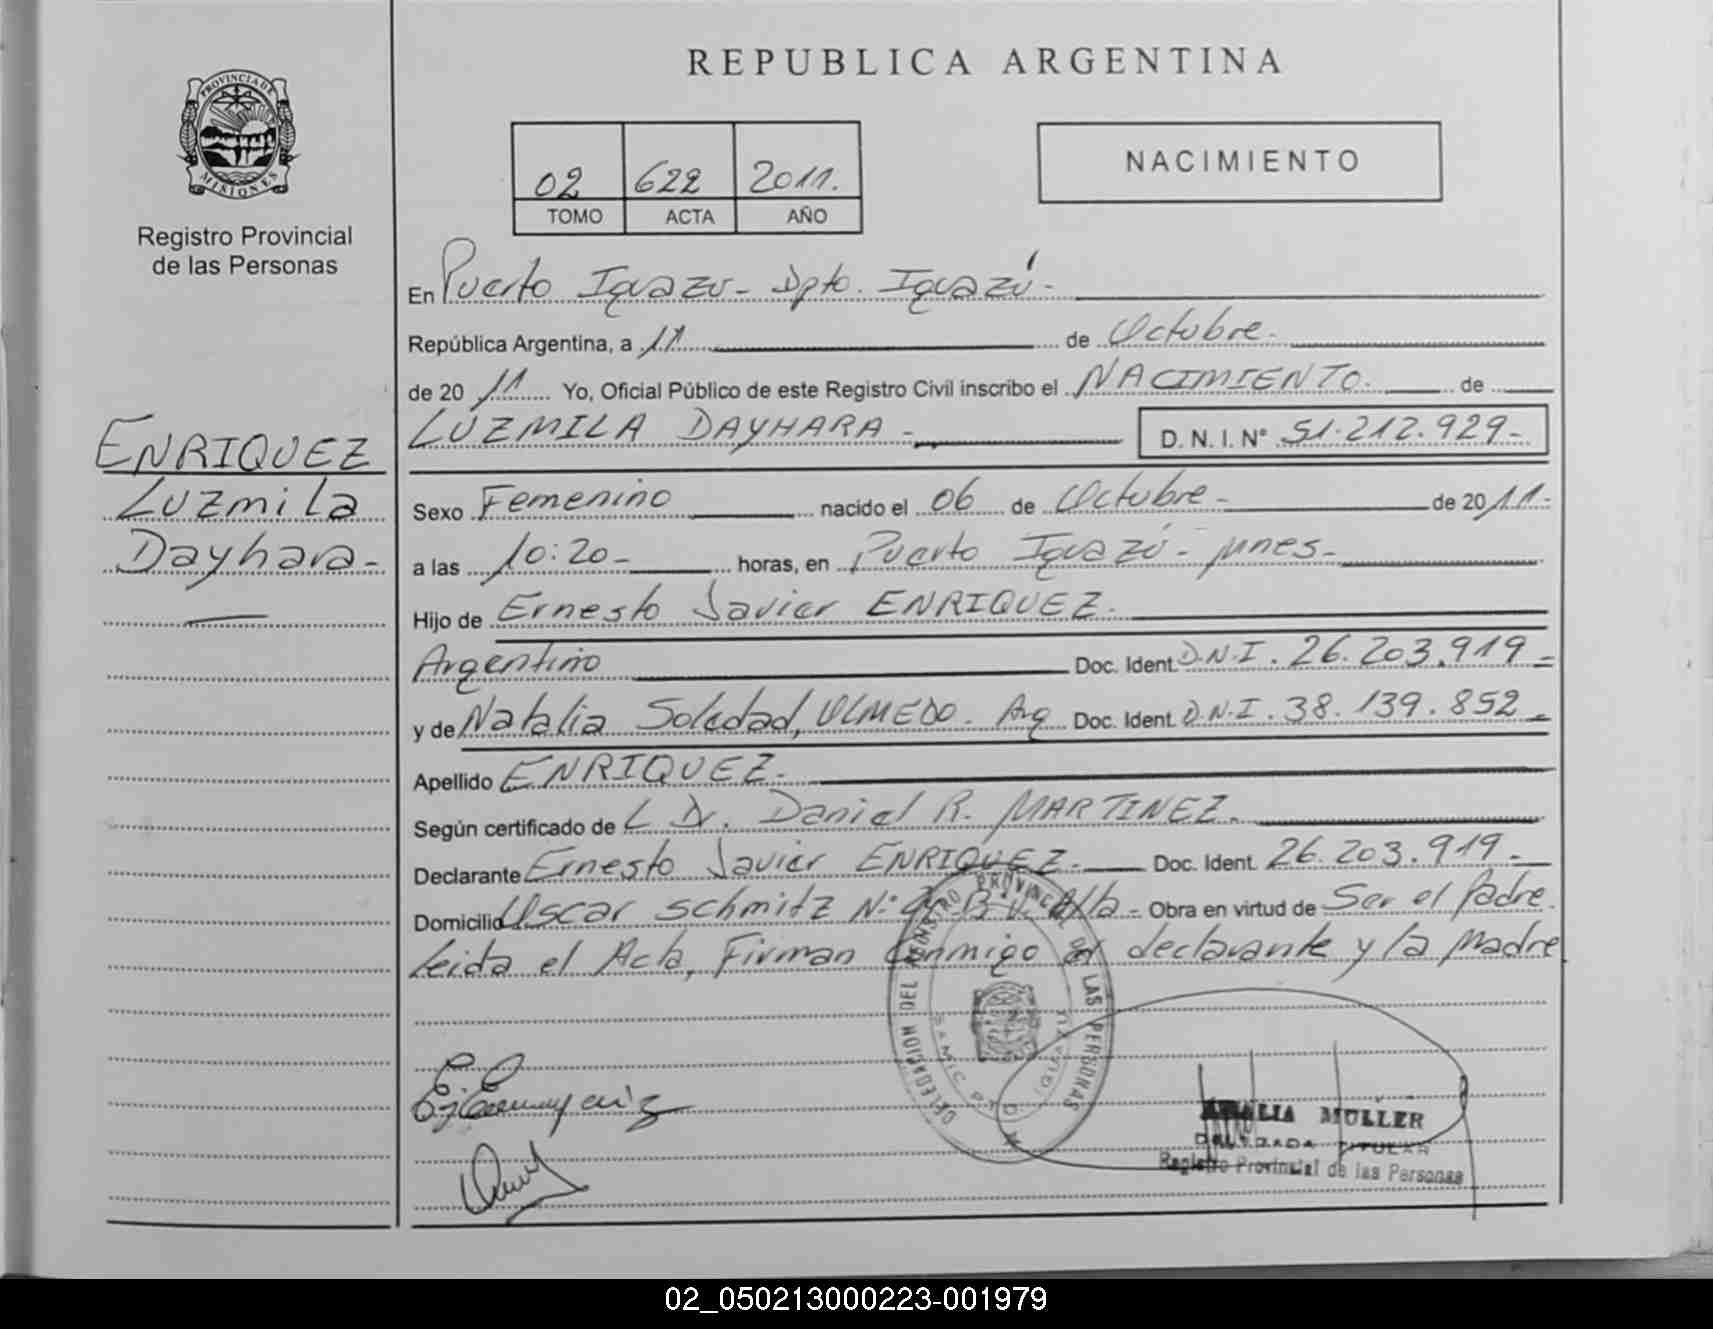 REPUBLICA ARGENTINA
PROVINCIA DE MISIONES
Registro Provincial
de las Personas
02 622 2011.
TOMO ACTA AÑO
NACIMIENTO
En Puerto Iguazú - Dpto. Iguazú -
República Argentina, a 11 de Octubre.
de 20 11 Yo, Oficial Público de este Registro Civil inscribo el NACIMIENTO. de
LUZMILA DAYHARA - D. N. I. N° 51.212.929-
ENRIQUEZ
Luzmila
Dayhara-
Sexo Femenino nacido el 06 de Octubre - de 2011-
a las 10:20- horas, en Puerto Iguazú - mnes-
Hijo de Ernesto Javier ENRIQUEZ.
Argentino Doc. Ident. D.N.I. 26.203.919-
y de Natalia Soledad, OLMEDO. Arg Doc. Ident. D.N.I. 38.139.852-
Apellido ENRIQUEZ-
Según certificado de L Dr. Daniel R. MARTINEZ-
Declarante Ernesto Javier ENRIQUEZ- Doc. Ident. 26.203.919-
Domicilio Oscar Schmitz N° B° V. Alta- Obra en virtud de Ser el Padre.
Leida el Acta, Firman Conmigo el declarante y la Madre
DELEGACION DEL REGISTRO PROVINCIAL DE LAS PERSONAS
SAMIC PTO. IGUAZU
MÜLLER
DELEGADA TITULAR
Registro Provincial de las Personas
02_050213000223-001979